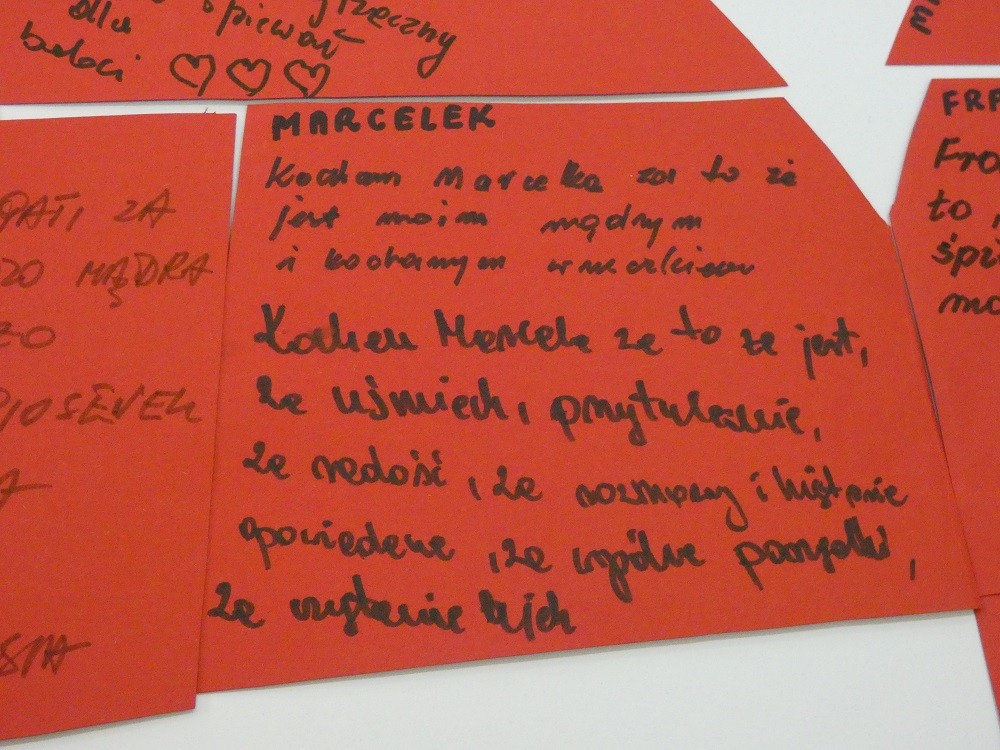 grzeczny
dla śpiewać
babci
MARCELEK
Kocham Marcelka za to że
jest moim mądrym
i kochanym wnuczkiem
Kocham Marcelka za to że jest,
za uśmiech, przytulanie,
za radość, za rozmowy i historie
opowiadane, za wspólne posiłki,
za
ZA
MĄDRA
ZO
PIOSENEK
A
SIA
FRA
Fra
to
mo